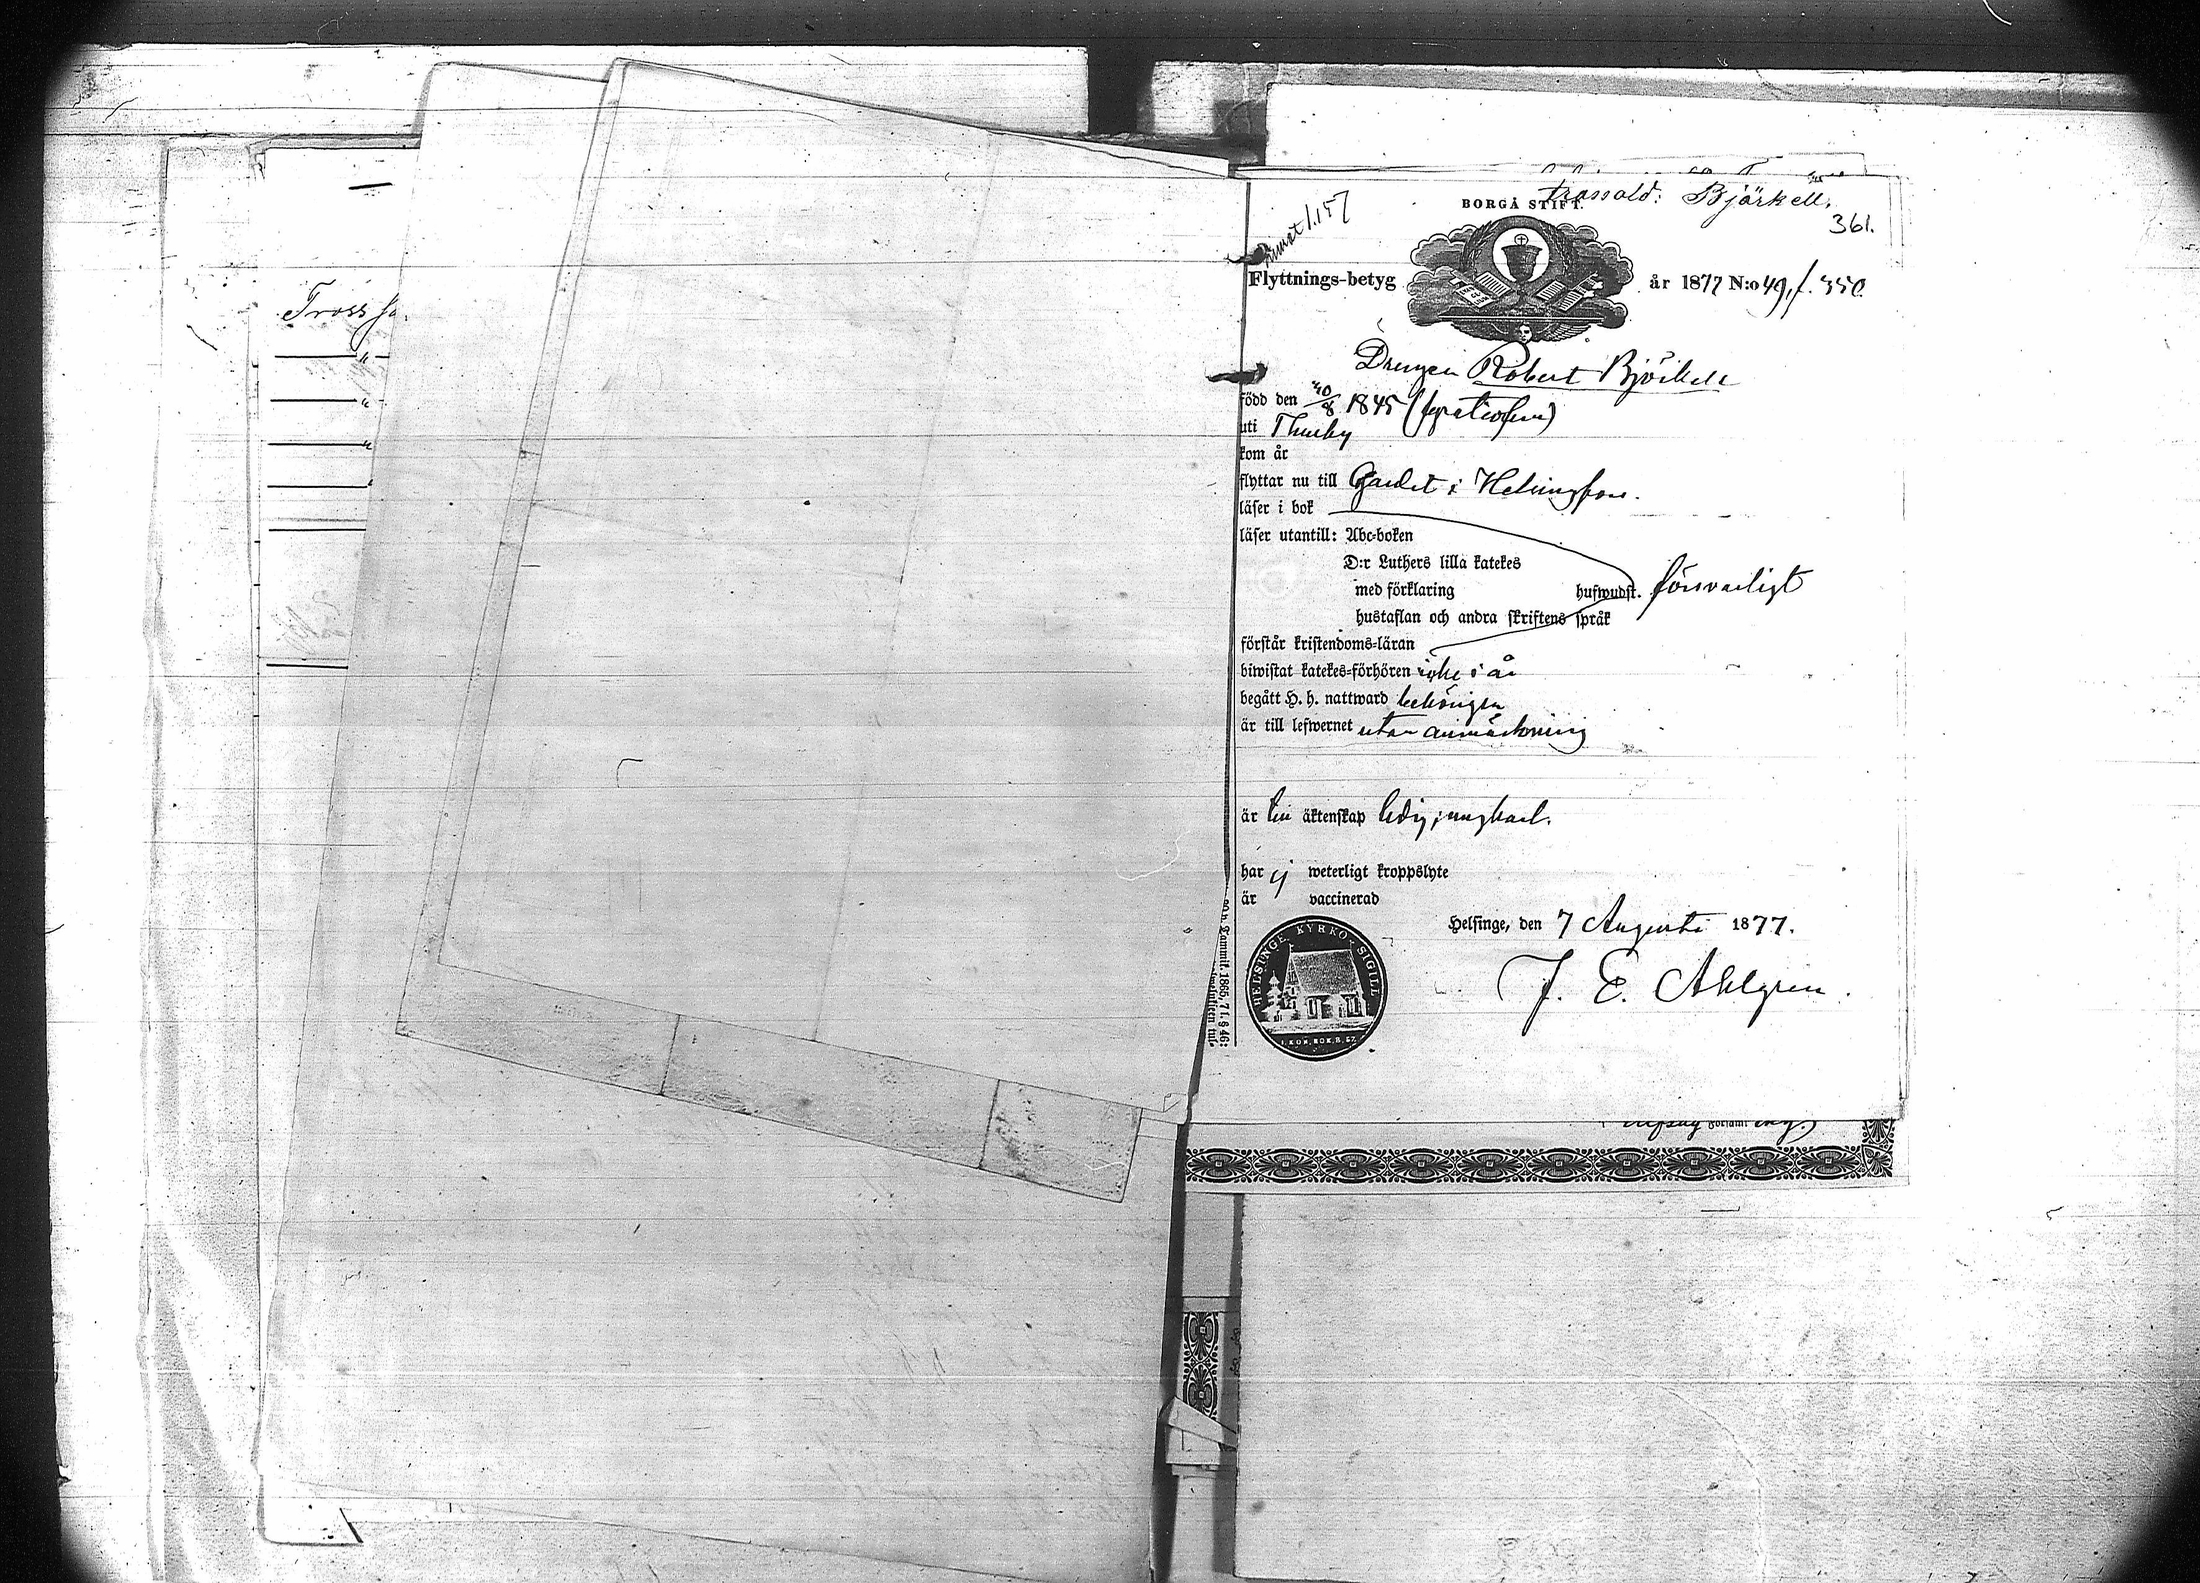 Trossold: Björkell.
361.
BORGÅ STIFT.
Flyttnings-betyg år 1877 N:o 49, f. 350
Drengen Robert Björkell
född den 1845
uti Thurby
kom år
flyttar nu till Gardet i Helsingfors.
läser i bok
läser utantill: Abc-boken
D:r Luthers lilla katekes
med förklaring hufwudst. försvarligt
hustaflan och andra skriftens språk
förstår kristendoms-läran
biwistat katekes-förhören icke i år
begått H. h. nattward behörigen
är till lefwernet utan anmärkning
är till äktenskap ledig, ungkarl.
har ej weterligt kroppslyte
är vaccinerad
Helsinge, den 7 Augusti 1877.
J. E. Ahlgren.
HELSINGE KYRKO SIGILL
I. KON. BOK. 8. 57.
1865, 71. § 46: